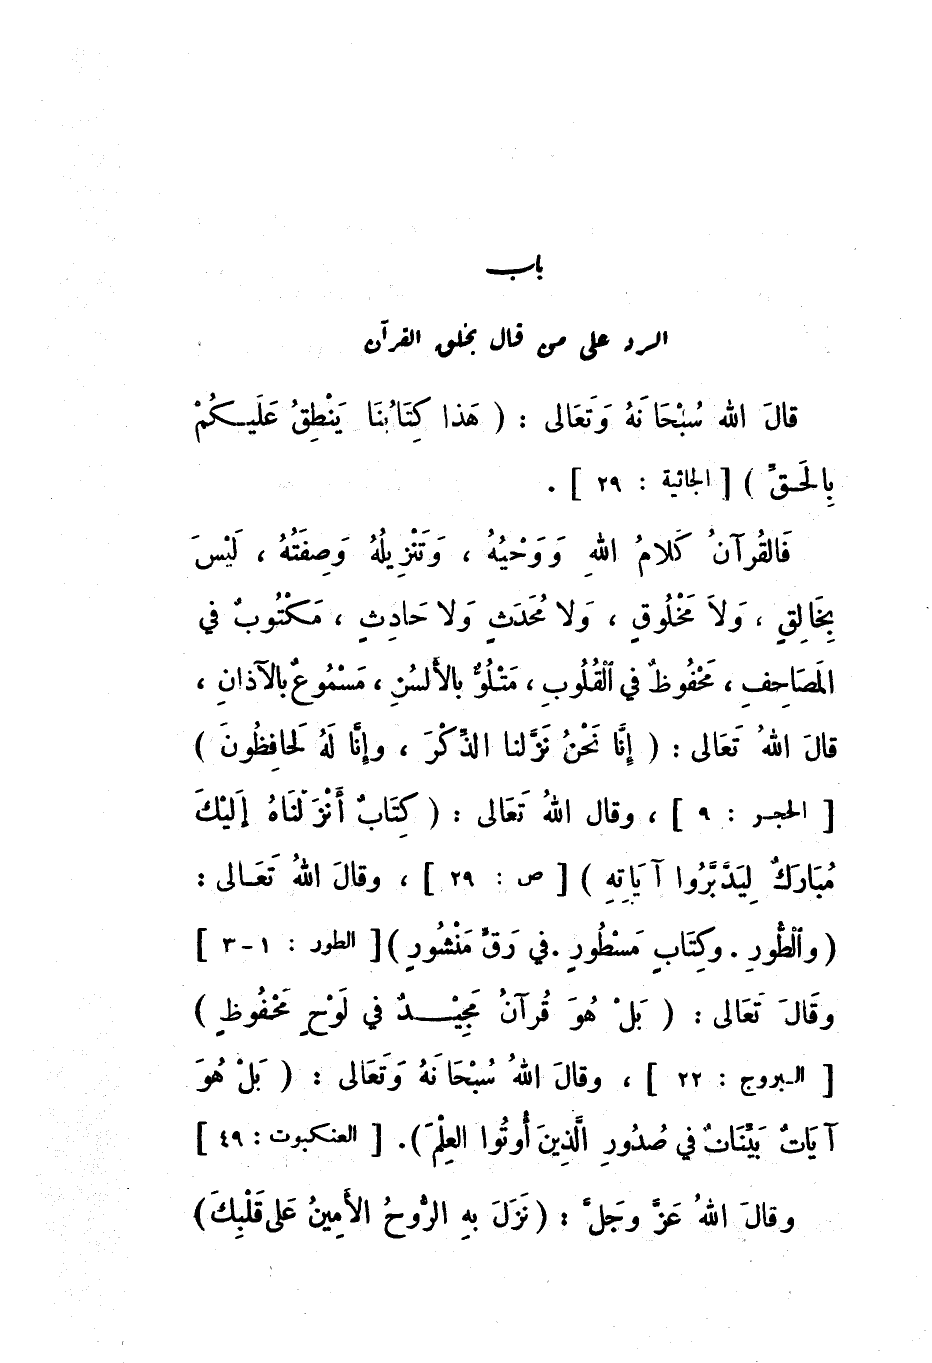 باب
الرد على من قال بخلق القرآن
قالَ الله سُبْحَانَهُ وَتَعَالى : ( هَذا كِتَابُنَا يَنْطِقُ عَلَيــكُمْ
بِالحَـقِّ ) [ الجاثية : ٢٩ ] .
فَالقُرآنُ كَلامُ اللهِ وَوَحْيُهُ ، وَتَنْزِيلُهُ وَصِفَتُهُ ، لَيْسَ
بِخَالِقٍ ، وَلاَ مَخْلُوقٍ ، وَلا مُحَدَثٍ وَلا حَادِثٍ ، مَكْتُوبٌ في
المَصَاحِفِ ، مَحْفُوظٌ في ٱلْقُلُوبِ ، مَتْلُوٌّ بالأَلسُنِ ، مَسْمُوعٌ بالآذانِ ،
قالَ اللهُ تَعَالى : ( إِنَّا نَحْنُ نَزَّلنا الذِّكْرَ ، وإِنَّا لَهُ لَحَافِظُونَ )
[ الحجـر : ٩ ] ، وقال اللهُ تَعَالى : ( كِتَابٌ أَنْزَلْنَاهُ إِلَيْكَ
مُبَارَكٌ لِيَدَّبَّرُوا آيَاتِهِ ) [ ص : ٢٩ ] ، وقالَ اللهُ تَعَـالى :
( وٱلطُّورِ . وكِتَابٍ مَسْطُورٍ . في رَقٍّ مَنْشُورٍ ) [ الطور : ١ - ٣ ]
وقَالَ تَعَالى : ( بَلْ هُوَ قُرآنُ مَجِيْـــدٌ في لَوْحٍ مَحْفُوظٍ )
[ الـبروج : ٢٢ ] ، وقالَ اللهُ سُبْحَانَهُ وَتَعَالى : ( بَلْ هُوَ
آيَاتٌ بَيِّنَاتٌ في صُدُورِ الَّذِينَ أُوتُوا العِلْمَ ). [ العنكبوت : ٤٩ ]
وقالَ اللهُ عَزَّ وجَلَّ : ( نَزَلَ بهِ الرُّوحُ الأَمِينُ عَلى قَلْبِكَ )